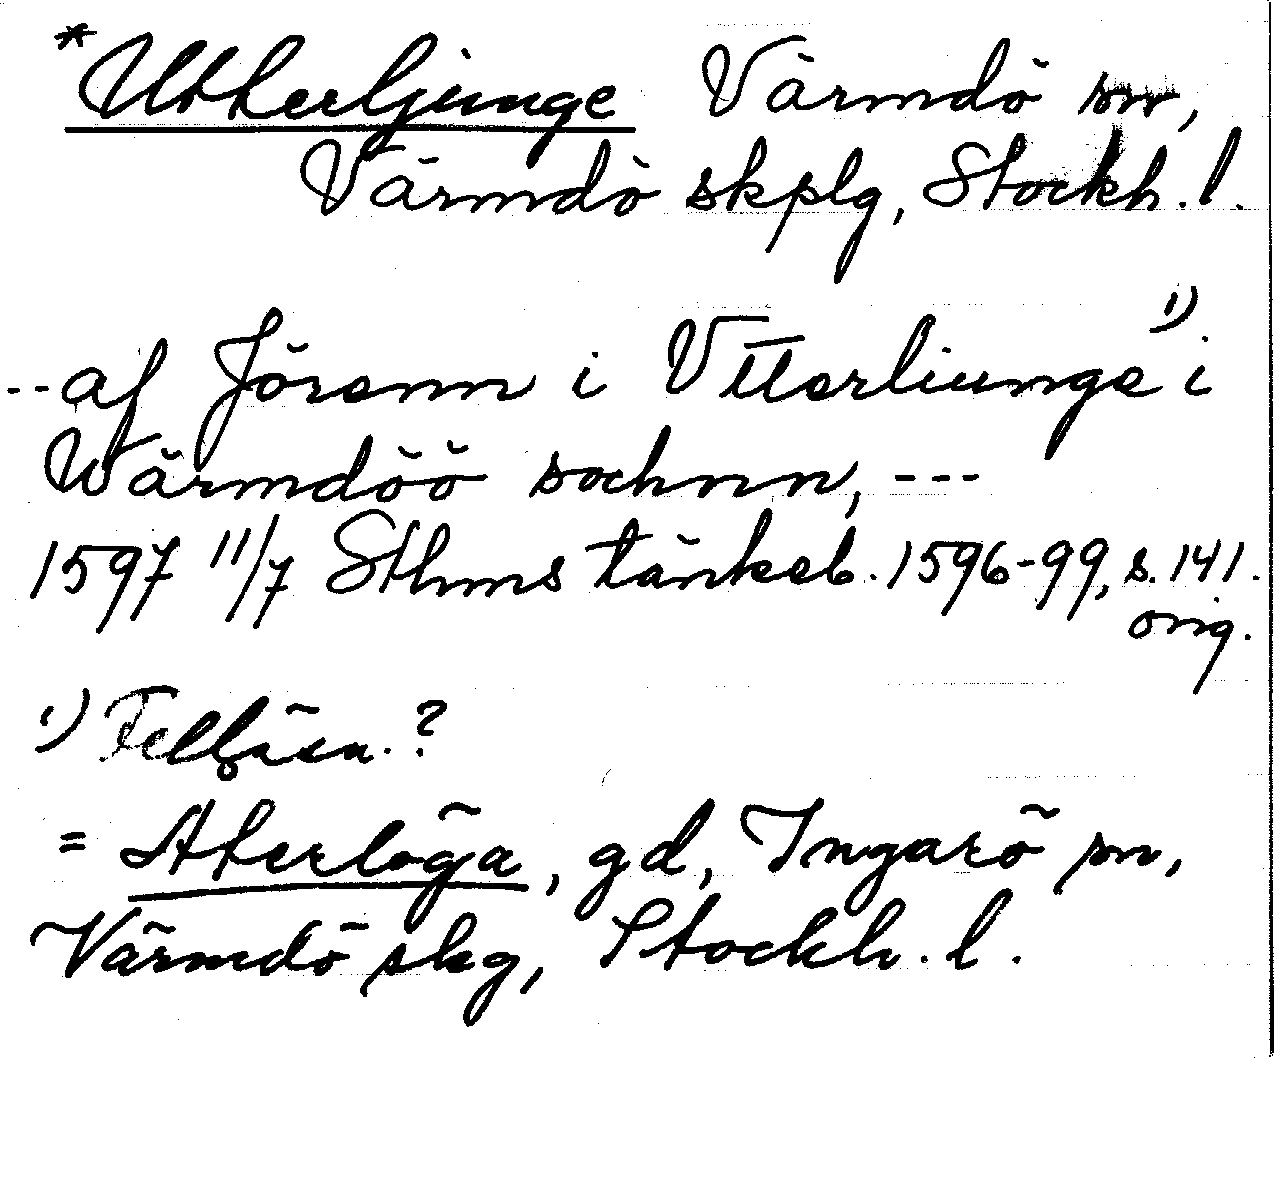 *Utterljunge Värmdö sn,
Värmdö skplg, Stockh. l.
--af Jörenn i Vtterliunge ¹⁾ i
Wärmdöö sochnn, ---
1597 11/7 Sthms tänkeb. 1596-99, s. 141.
orig.
¹⁾ Felläsn.?
= Återlöga, gd, Ingarö sn,
Värmdö skg, Stockh. l.